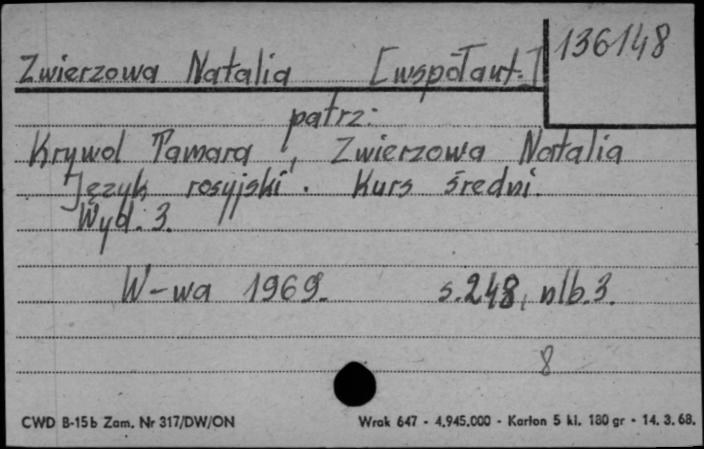 136148
Zwierzowa Natalia [współaut.]
patrz:
Krywol Tamara, Zwierzowa Natalia
Język rosyjski. Kurs średni.
Wyd. 3.
W-wa 1969. s.248, nlb.3.
8
CWD B-15b Zam. Nr 317/DW/ON Wrak 647 - 4.945.000 - Karton 5 kl. 180 gr - 14. 3. 68.